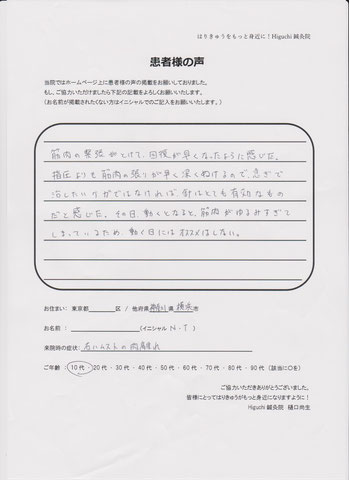 はりきゅうをもっと身近に！Higuchi 鍼灸院
患者様の声
当院ではホームページ上に患者様の声の掲載をお願いしております。
もし、ご協力いただけましたら下記の記載をよろしくお願いいたします。
（お名前が掲載されたくない方はイニシャルでのご記入をお願いします。）
筋肉の緊張がとけて、回復が早くなったように感じた。
指圧よりも筋肉の張りが早く深くぬけるので、急ぎで
治したいケガではなければ、針はとても有効なもの
だと感じた。その日、動くとなると、筋肉がゆるみすぎて
しまっているため、動く日にはオススメはしない。
お住まい： 東京都 区 / 他府県 神奈川 県 横浜 市
お名前： （イニシャル N・T ）
来院時の症状： 右ハムストの肉離れ
ご年齢： 10代・20代・30代・40代・50代・60代・70代・80代・90代（該当に〇を）
ご協力いただきありがとうございました。
皆様にとってはりきゅうがもっと身近になりますように！
Higuchi 鍼灸院 樋口尚生